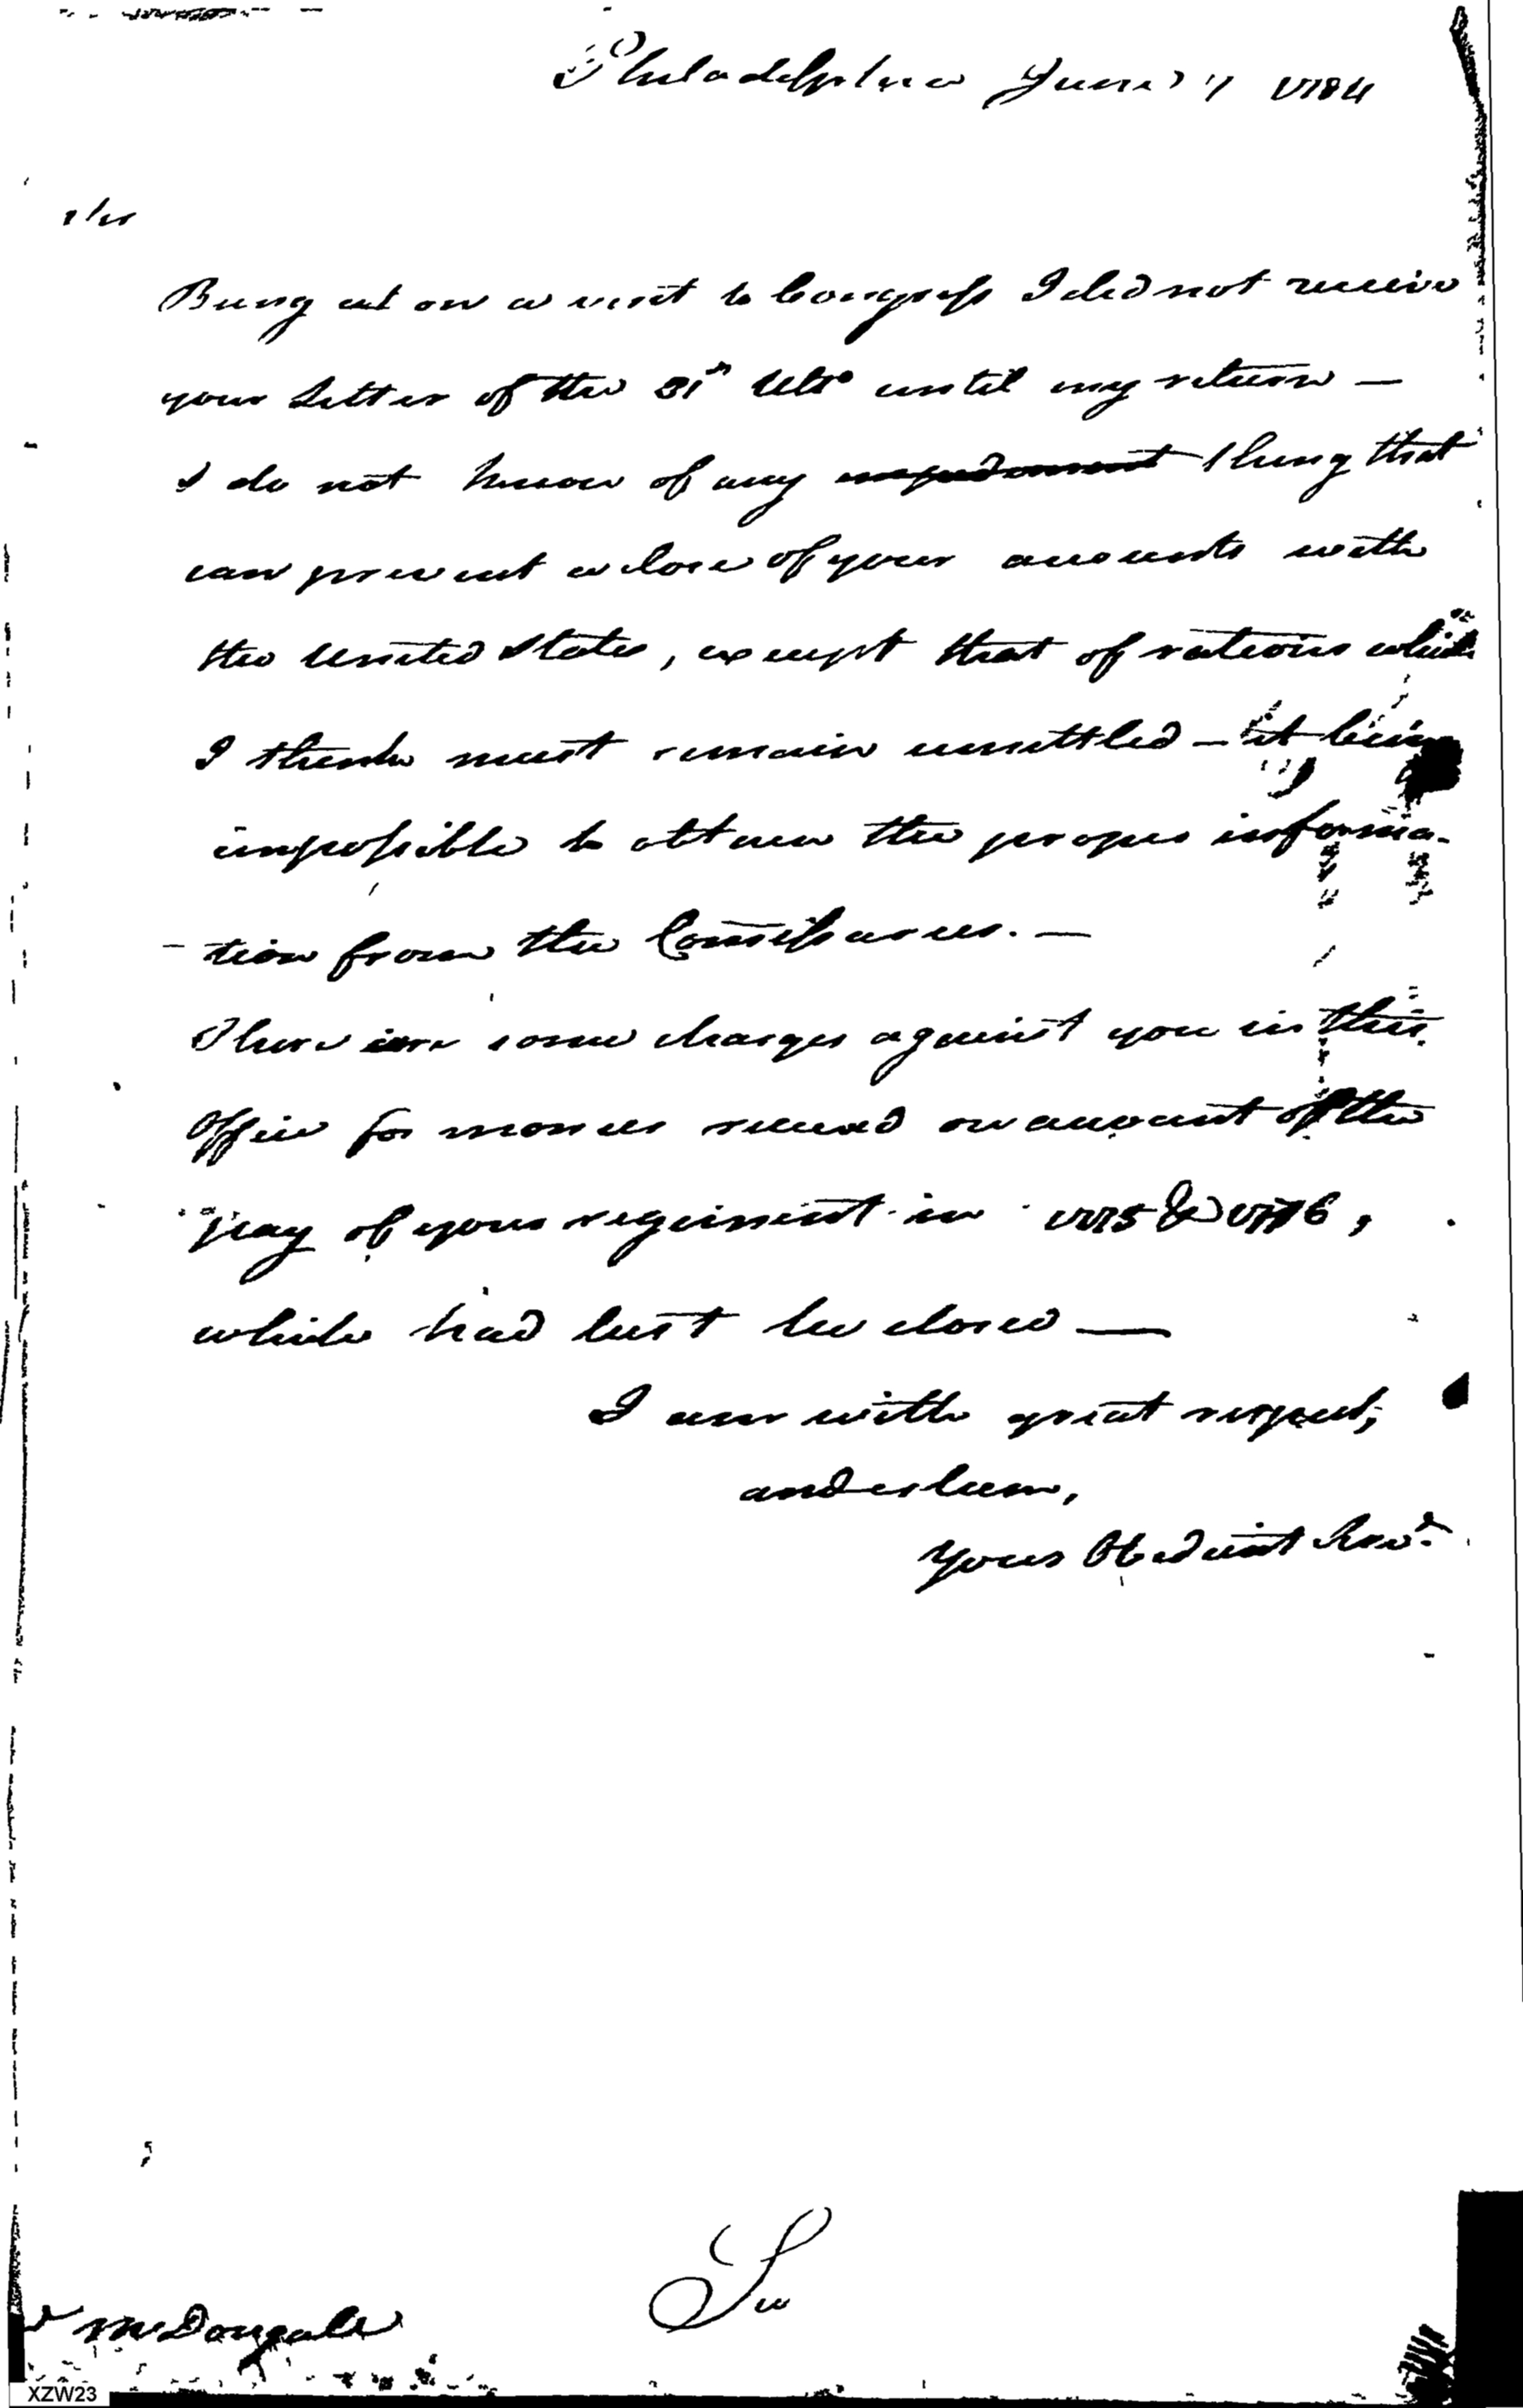 Philadelphia June 7 1784
Sir
Being out on a visit to Congress I did not receive
your Letter of the 31st Ulto until my return —
I do not know of any impediment thing that
can prevent a close of your accounts with
the United States, except that of rations which
I think must remain unsettled — it being
impossible to obtain the proper informa-
-tion from the Comissaries. —
There are some charges against you in this
Office for monies received on account of the
pay of your regiment in 1775 & 1776,
which had best be closed —
I am with great respect,
and esteem,
Your Obedient Serv.t
McDougale
XZW23